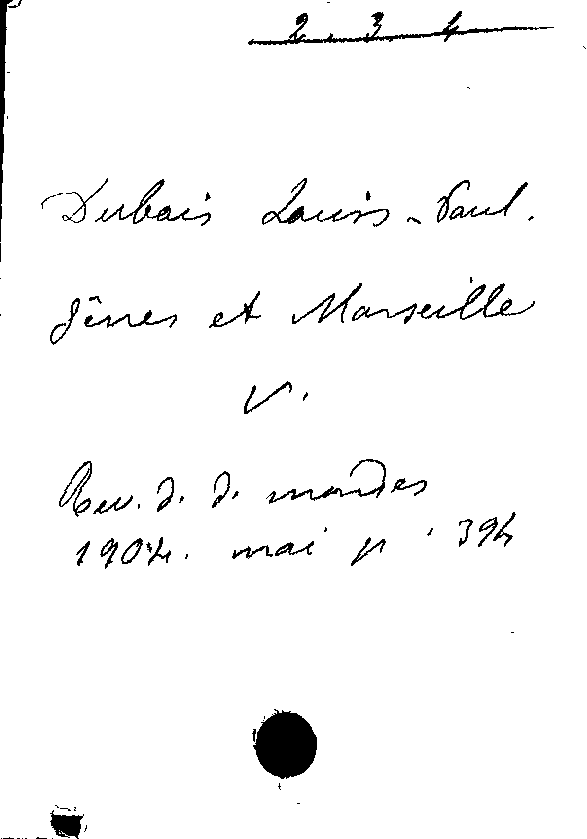 2. 3. 4
Dubois Louis-Paul.
Gênes et Marseille
V.
Rev. d. d. mondes
1904. mai p. 394